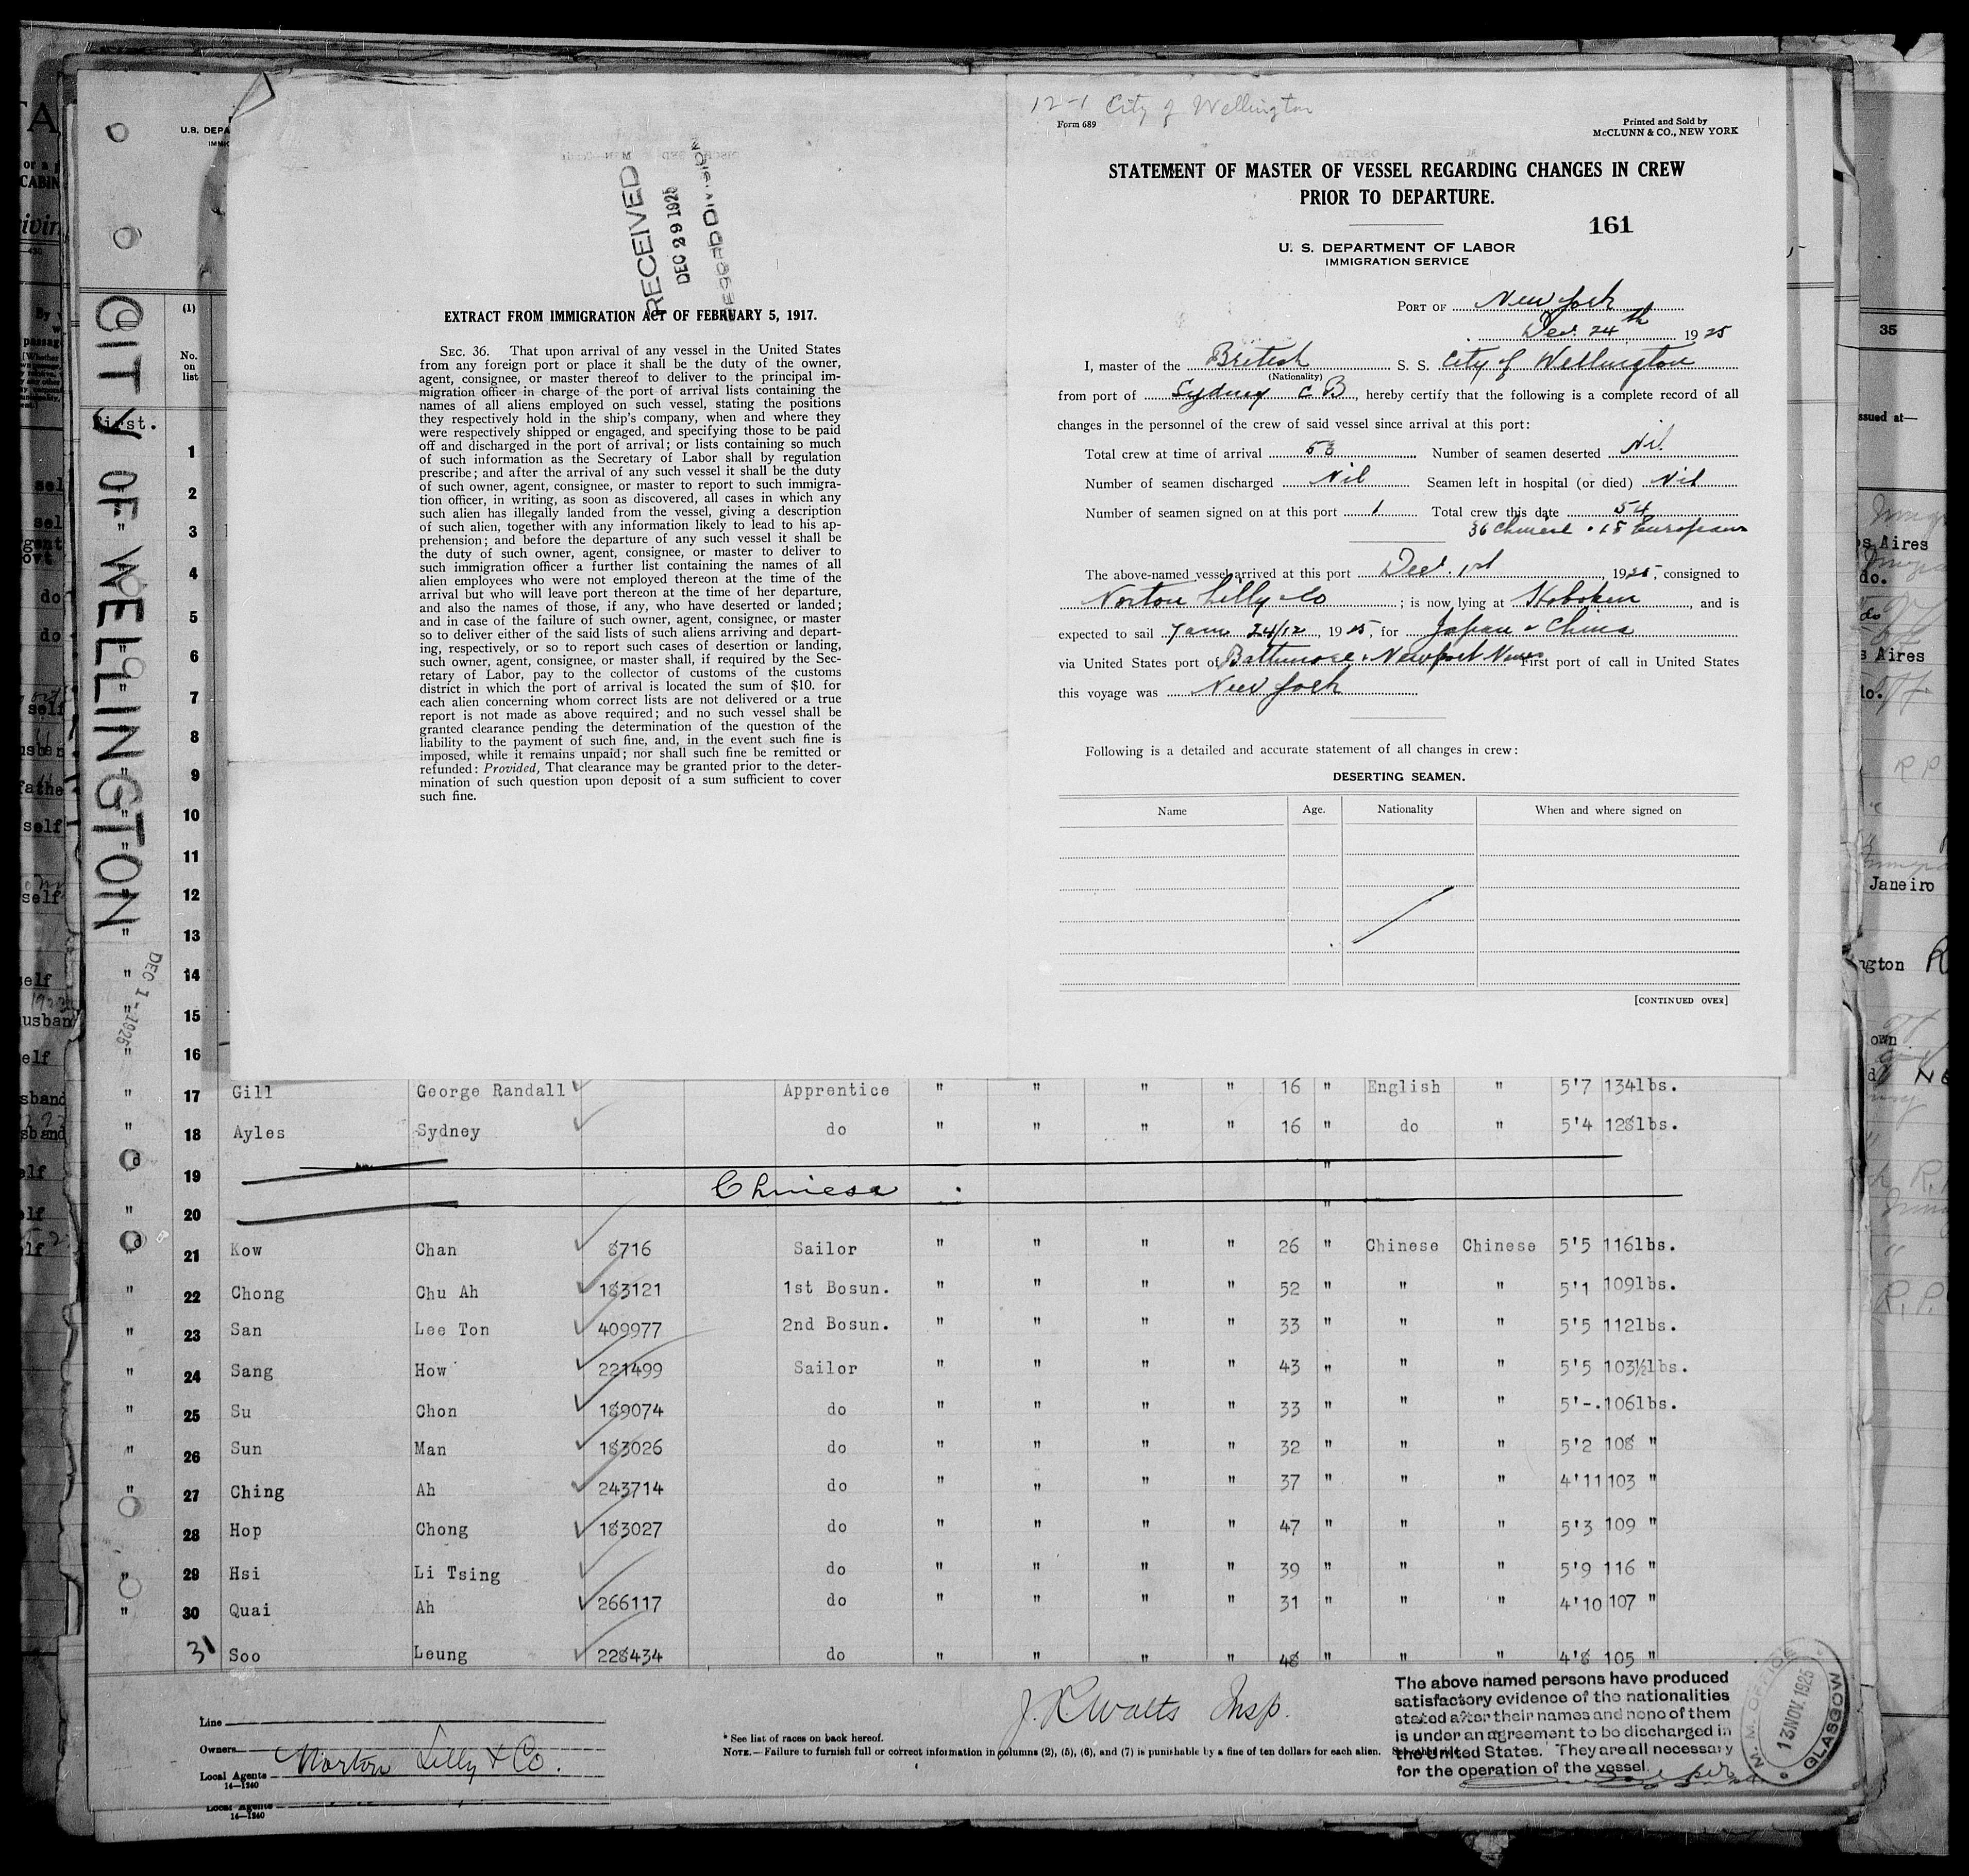 12-1 City of Wellington
Form 689
Printed and Sold by
McCLUNN & CO., NEW YORK
STATEMENT OF MASTER OF VESSEL REGARDING CHANGES IN CREW
PRIOR TO DEPARTURE.
161
U. S. DEPARTMENT OF LABOR
IMMIGRATION SERVICE
PORT OF New York
Dec. 24th 1925
I, master of the British S. S. City of Wellington
(Nationality)
from port of Sydney C B, hereby certify that the following is a complete record of all
changes in the personnel of the crew of said vessel since arrival at this port:
Total crew at time of arrival 53 Number of seamen deserted Nil.
Number of seamen discharged Nil Seamen left in hospital (or died) Nil
Number of seamen signed on at this port 1 Total crew this date 54
36 Chinese 18 Europeans
The above-named vessel arrived at this port Dec. 1st 1925, consigned to
Norton Lilly & Co; is now lying at Hoboken, and is
expected to sail 7am 24/12, 1925, for Japan & China
via United States port of Baltimore & Newport News First port of call in United States
this voyage was New York
Following is a detailed and accurate statement of all changes in crew:
DESERTING SEAMEN.
Name Age. Nationality When and where signed on
[CONTINUED OVER]
RECEIVED
DEC 29 1925
RECORD DIVISION
EXTRACT FROM IMMIGRATION ACT OF FEBRUARY 5, 1917.
SEC. 36. That upon arrival of any vessel in the United States
from any foreign port or place it shall be the duty of the owner,
agent, consignee, or master thereof to deliver to the principal im-
migration officer in charge of the port of arrival lists containing the
names of all aliens employed on such vessel, stating the positions
they respectively hold in the ship's company, when and where they
were respectively shipped or engaged, and specifying those to be paid
off and discharged in the port of arrival; or lists containing so much
of such information as the Secretary of Labor shall by regulation
prescribe; and after the arrival of any such vessel it shall be the duty
of such owner, agent, consignee, or master to report to such immigra-
tion officer, in writing, as soon as discovered, all cases in which any
such alien has illegally landed from the vessel, giving a description
of such alien, together with any information likely to lead to his ap-
prehension; and before the departure of any such vessel it shall be
the duty of such owner, agent, consignee, or master to deliver to
such immigration officer a further list containing the names of all
alien employees who were not employed thereon at the time of the
arrival but who will leave port thereon at the time of her departure,
and also the names of those, if any, who have deserted or landed;
and in case of the failure of such owner, agent, consignee, or master
so to deliver either of the said lists of such aliens arriving and depart-
ing, respectively, or so to report such cases of desertion or landing,
such owner, agent, consignee, or master shall, if required by the Sec-
retary of Labor, pay to the collector of customs of the customs
district in which the port of arrival is located the sum of $10. for
each alien concerning whom correct lists are not delivered or a true
report is not made as above required; and no such vessel shall be
granted clearance pending the determination of the question of the
liability to the payment of such fine, and, in the event such fine is
imposed, while it remains unpaid; nor shall such fine be remitted or
refunded: Provided, That clearance may be granted prior to the deter-
mination of such question upon deposit of a sum sufficient to cover
such fine.
U.S. DEPA
IMMIG
CITY OF WELLINGTON
DEC 1-1925
(1)
No.
on
list
First.
1
2
3
4
5
6
7
8
9
10
11
12
13
14
15
16
" 17 Gill George Randall Apprentice " " " " 16 " English " 5'7 134lbs.
" 18 Ayles Sydney do " " " " 16 " do " 5'4 128lbs.
19 "
Chinese.
" 20 "
" 21 Kow Chan 8716 Sailor " " " " 26 " Chinese Chinese 5'5 116lbs.
" 22 Chong Chu Ah 183121 1st Bosun. " " " " 52 " " " 5'1 109lbs.
" 23 San Lee Ton 409977 2nd Bosun. " " " " 33 " " " 5'5 112lbs.
" 24 Sang How 221499 Sailor " " " " 43 " " " 5'5 103½lbs.
" 25 Su Chon 189074 do " " " " 33 " " " 5'-. 106lbs.
" 26 Sun Man 183026 do " " " " 32 " " " 5'2 108 "
" 27 Ching Ah 243714 do " " " " 37 " " " 4'11 103 "
" 28 Hop Chong 183027 do " " " " 47 " " " 5'3 109 "
" 29 Hsi Li Tsing do " " " " 39 " " " 5'9 116 "
" 30 Quai Ah 266117 do " " " " 31 " " " 4'10 107 "
31 Soo Leung 228434 do " " " " 48 " " " 4'8 105 "
Line
Owners
Local Agents Norton Lilly & Co.
14—1240
Local Agents
14—1240
J. R. Watts Insp.
* See list of races on back hereof.
NOTE.—Failure to furnish full or correct information in columns (2), (5), (6), and (7) is punishable by a fine of ten dollars for each alien.
The above named persons have produced
satisfactory evidence of the nationalities
stated after their names and none of them
is under an agreement to be discharged in
the United States. They are all necessary
for the operation of the vessel.
M.M. OFFICE
13 NOV. 1925
GLASGOW
35
ssued at—
s Aires
do.
s Aires
Janeiro
own